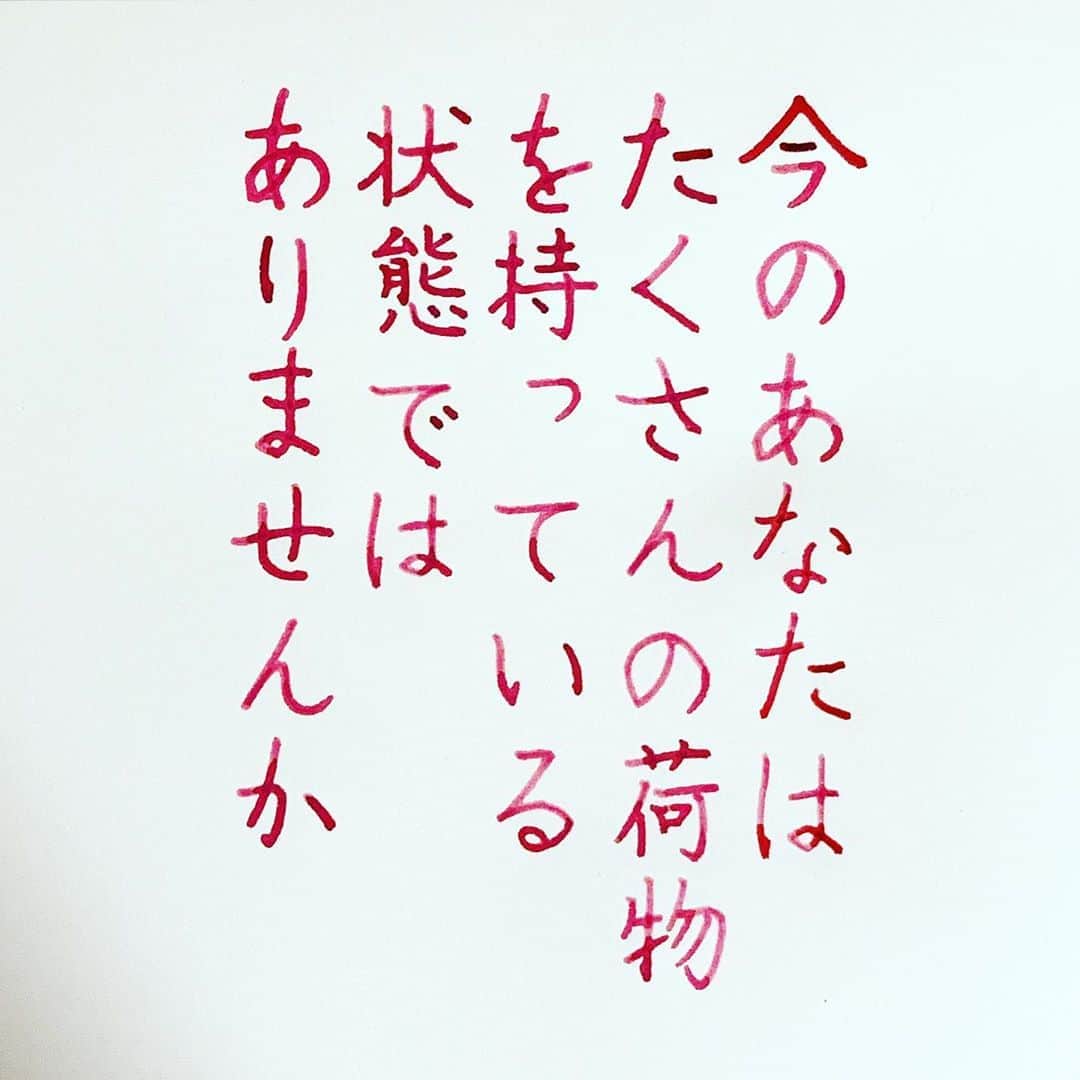 今のあなたは
たくさんの荷物
を持っている
状態では
ありませんか